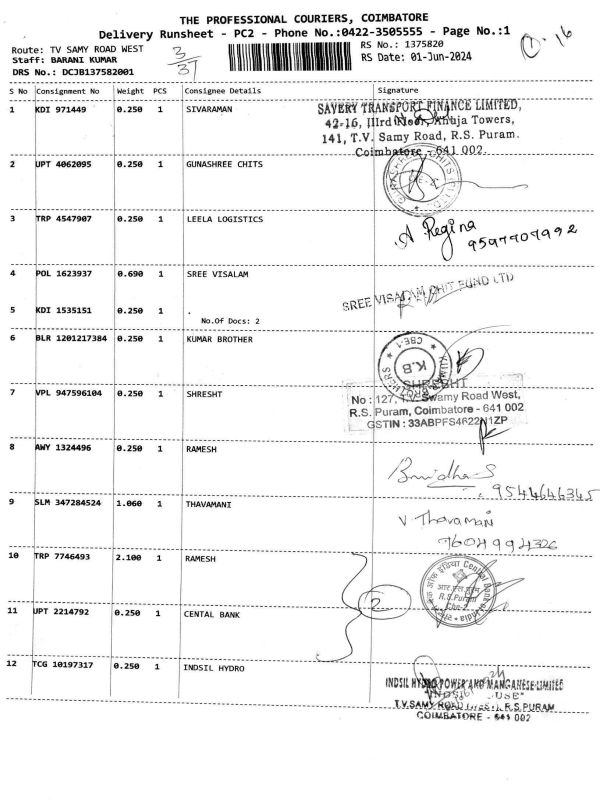 THE PROFESSIONAL COURIERS, COIMBATORE
Delivery Runsheet - PC2 - Phone No.:0422-3505555 - Page No.:1
Route: TV SAMY ROAD WEST
Staff: BARANI KUMAR
DRS No.: DCJB137582001
3/37
RS No.: 1375820
RS Date: 01-Jun-2024
S No Consignment No Weight PCS Consignee Details Signature
1 KDI 971449 0.250 1 SIVARAMAN
SAVERY TRANSPORT FINANCE LIMITED,
42-16, IIIrd Floor, Anuja Towers,
141, T.V. Samy Road, R.S. Puram.
Coimbatore - 641 002.
2 UPT 4062095 0.250 1 GUNASHREE CHITS
3 TRP 4547907 0.250 1 LEELA LOGISTICS
A Regina
9597909992
4 POL 1623937 0.690 1 SREE VISALAM
SREE VISALAM CHIT FUND LTD
5 KDI 1535151 0.250 1 .
No.Of Docs: 2
6 BLR 1201217384 0.250 1 KUMAR BROTHER
KUMAR BROTHERS
CBE-1
K.B
7 VPL 947596104 0.250 1 SHRESHT
SHRESHT
No : 127, T.V. Swamy Road West,
R.S. Puram, Coimbatore - 641 002
GSTIN : 33ABPFS4622N1ZP
8 AWY 1324496 0.250 1 RAMESH
9544646345
9 SLM 347284524 1.060 1 THAVAMANI
V Thavamani
9604994326
10 TRP 7746493 2.100 1 RAMESH
Central Bank
R.S.Puram
2
11 UPT 2214792 0.250 1 CENTAL BANK
12 TCG 10197317 0.250 1 INDSIL HYDRO
INDSIL HYDRO POWER AND MANGANESE LIMITED
T.V.SAMY ROAD R.S.PURAM
COIMBATORE - 641 002